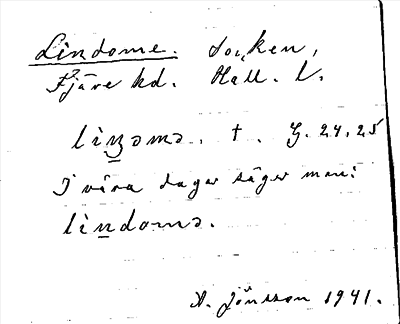 Lindome. Socken,
Fjäre hd. Hall. l.
linəmə. †. G. 24, 25
I våra dagar säger man:
lindomə.
A. Jönsson 1941.